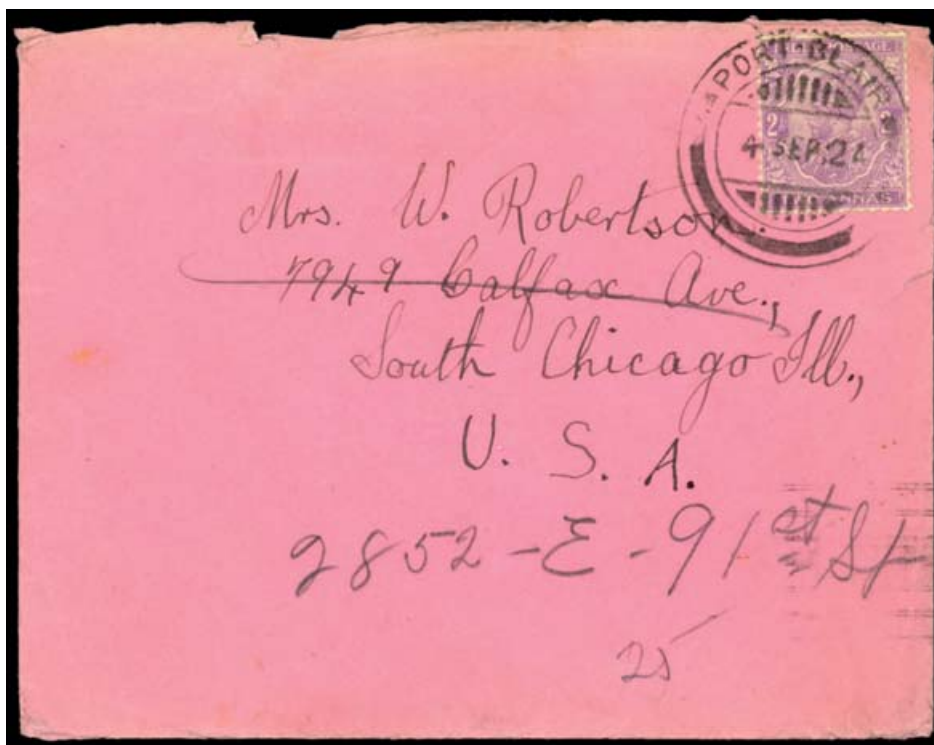 PORT·BLAIR
2
4 SEP.24
Mrs. W. Robertson.
7949 Calfax Ave.,
South Chicago Ill.,
U. S. A.
2852-E-91st St
25